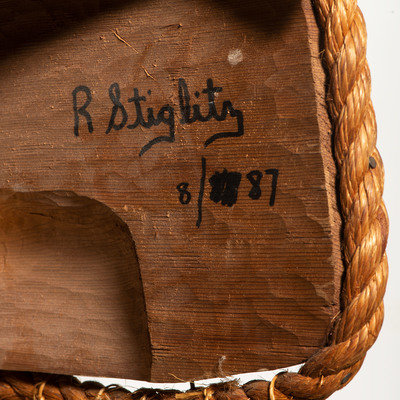 R Stiglitz
8/ 87